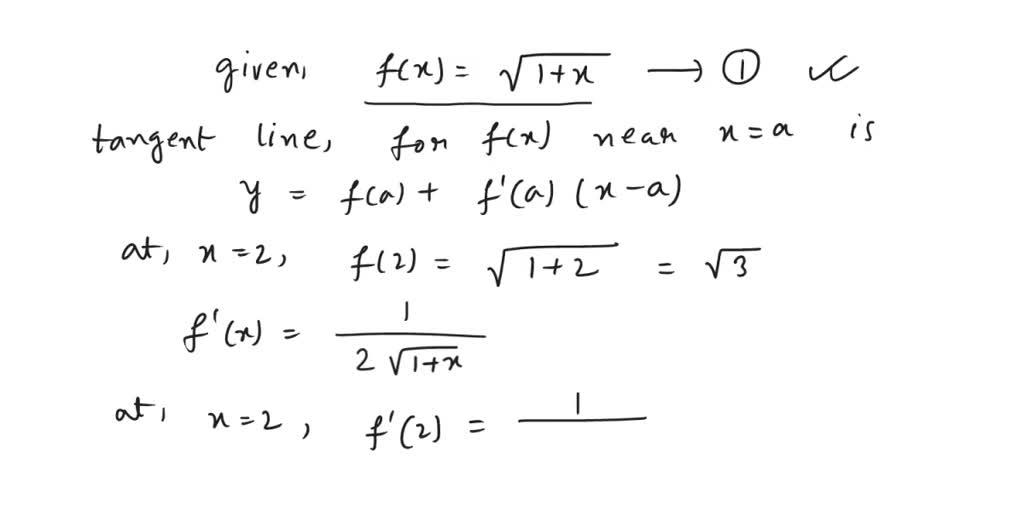 given, f(x) = √(1+x) → ① ✓
tangent line, for f(x) near x=a is
y = f(a) + f'(a) (x-a)
at, x=2, f(2) = √(1+2) = √3
f'(x) = 1/(2√(1+x))
at, x=2, f'(2) = 1/